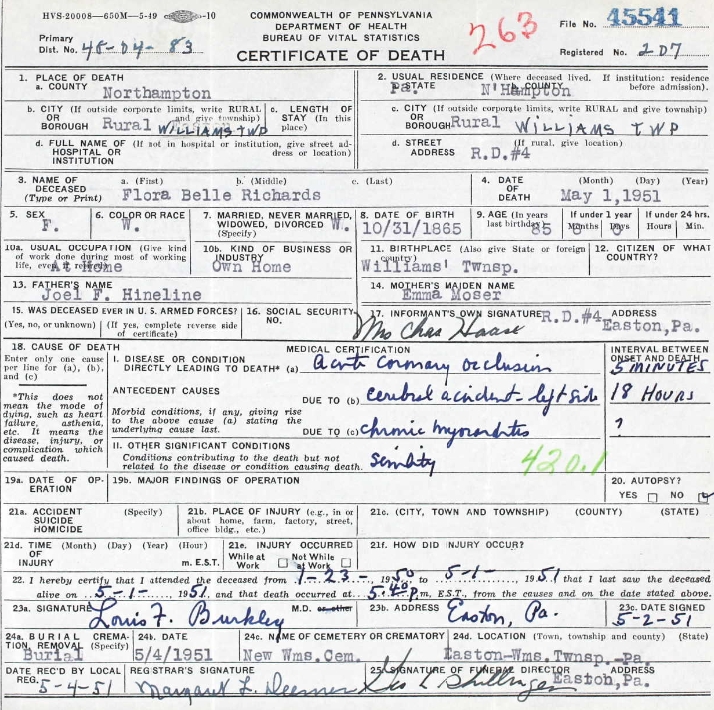 HVS-20008—650M—5-49 -10
COMMONWEALTH OF PENNSYLVANIA
DEPARTMENT OF HEALTH
BUREAU OF VITAL STATISTICS
CERTIFICATE OF DEATH
263
File No. 45541
Primary
Dist. No. 48-04-83
Registered No. 207
1. PLACE OF DEATH
a. COUNTY Northampton
2. USUAL RESIDENCE (Where deceased lived. If institution: residence before admission).
a. STATE Pa. b. COUNTY N'Hampton
b. CITY (If outside corporate limits, write RURAL and give township)
OR
BOROUGH Rural WILLIAMS TWP
c. LENGTH OF STAY (In this place)
c. CITY (If outside corporate limits, write RURAL and give township)
OR
BOROUGH Rural WILLIAMS TWP
d. FULL NAME OF (If not in hospital or institution, give street address or location)
HOSPITAL OR
INSTITUTION
d. STREET (If rural, give location)
ADDRESS R.D.#4
3. NAME OF DECEASED (Type or Print)
a. (First) b. (Middle) c. (Last)
Flora Belle Richards
4. DATE OF DEATH (Month) (Day) (Year)
May 1,1951
5. SEX
F.
6. COLOR OR RACE
W.
7. MARRIED, NEVER MARRIED, WIDOWED, DIVORCED (Specify)
W.
8. DATE OF BIRTH
10/31/1865
9. AGE (In years last birthday)
85
If under 1 year
Months Days
6 0
If under 24 hrs.
Hours Min.
10a. USUAL OCCUPATION (Give kind of work done during most of working life, even if retired)
At Home
10b. KIND OF BUSINESS OR INDUSTRY
Own Home
11. BIRTHPLACE (Also give State or foreign country)
Williams' Twnsp.
12. CITIZEN OF WHAT COUNTRY?
13. FATHER'S NAME
Joel F. Hineline
14. MOTHER'S MAIDEN NAME
Emma Moser
15. WAS DECEASED EVER IN U. S. ARMED FORCES?
(Yes, no, or unknown) (If yes, complete reverse side of certificate)
16. SOCIAL SECURITY NO.
17. INFORMANT'S OWN SIGNATURE ADDRESS
Mrs Chas Haase R.D.#4
Easton,Pa.
18. CAUSE OF DEATH
Enter only one cause per line for (a), (b), and (c)
*This does not mean the mode of dying, such as heart failure, asthenia, etc. It means the disease, injury, or complication which caused death.
MEDICAL CERTIFICATION
INTERVAL BETWEEN ONSET AND DEATH
I. DISEASE OR CONDITION
DIRECTLY LEADING TO DEATH* (a) Acute coronary occlusion
5 MINUTES
ANTECEDENT CAUSES
DUE TO (b) cerebral accident left side
18 HOURS
Morbid conditions, if any, giving rise to the above cause (a) stating the underlying cause last.
DUE TO (c) chronic myocarditis
?
II. OTHER SIGNIFICANT CONDITIONS
Conditions contributing to the death but not related to the disease or condition causing death.
Senility
420.1
19a. DATE OF OPERATION
19b. MAJOR FINDINGS OF OPERATION
20. AUTOPSY?
YES NO
21a. ACCIDENT (Specify)
SUICIDE
HOMICIDE
21b. PLACE OF INJURY (e.g., in or about home, farm, factory, street, office bldg., etc.)
21c. (CITY, TOWN AND TOWNSHIP) (COUNTY) (STATE)
21d. TIME (Month) (Day) (Year) (Hour)
OF
INJURY m. E.S.T.
21e. INJURY OCCURRED
While at Work Not While at Work
21f. HOW DID INJURY OCCUR?
22. I hereby certify that I attended the deceased from 1-23-, 1950, to 5-1-, 1951 that I last saw the deceased
alive on 5-1-, 1951, and that death occurred at 5:40 P.m., E.S.T., from the causes and on the date stated above.
23a. SIGNATURE Louis F. Burkley M.D. or other
23b. ADDRESS Easton, Pa.
23c. DATE SIGNED
5-2-51
24a. BURIAL CREMATION, REMOVAL (Specify)
Burial
24b. DATE
5/4/1951
24c. NAME OF CEMETERY OR CREMATORY
New Wms.Cem.
24d. LOCATION (Town, township and county) (State)
Easton-Wms.Twnsp.-Pa.
DATE REC'D BY LOCAL REG. 5-4-51
REGISTRAR'S SIGNATURE
Margaret L. Deemer
25. SIGNATURE OF FUNERAL DIRECTOR ADDRESS
Easton,Pa.